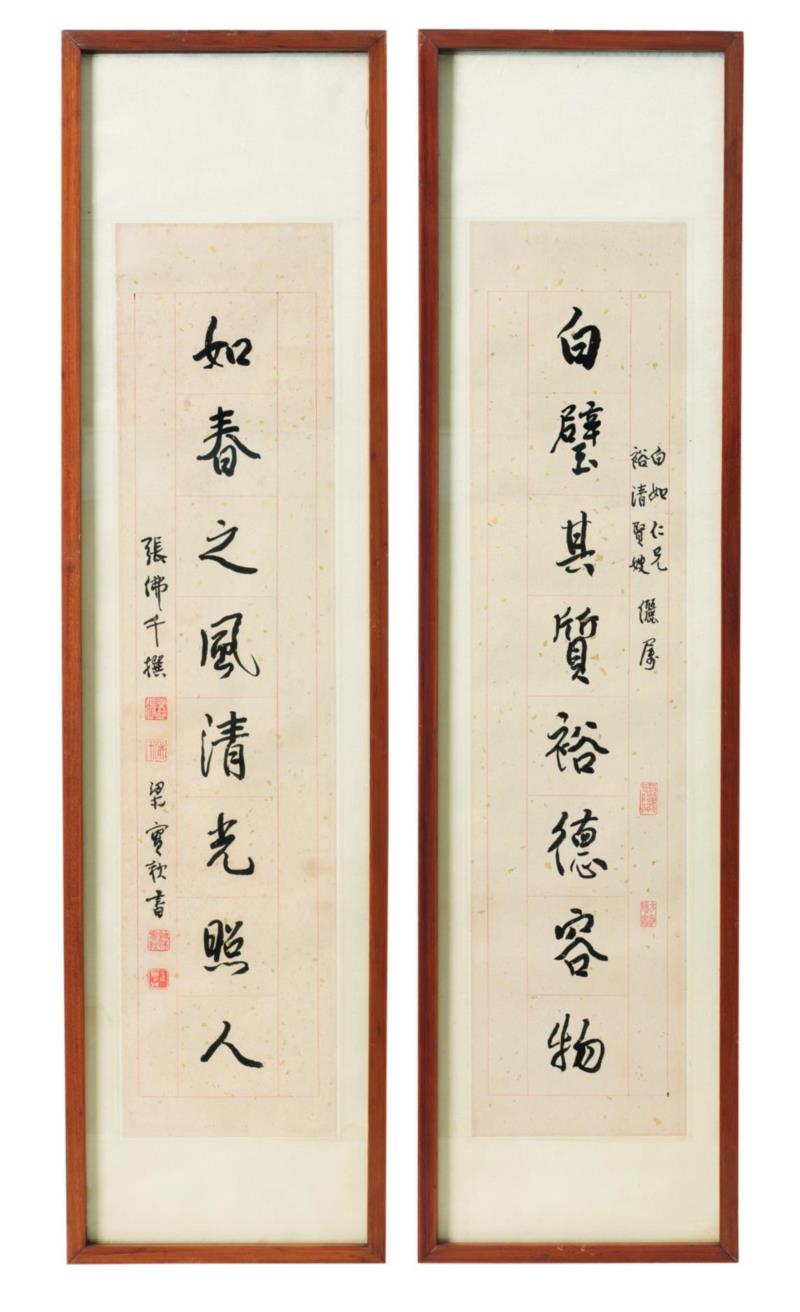 白如仁兄
裕清賢嫂 儷屬
白璧其質裕德容物
如春之風清光照人
張佛千撰
梁實秋書